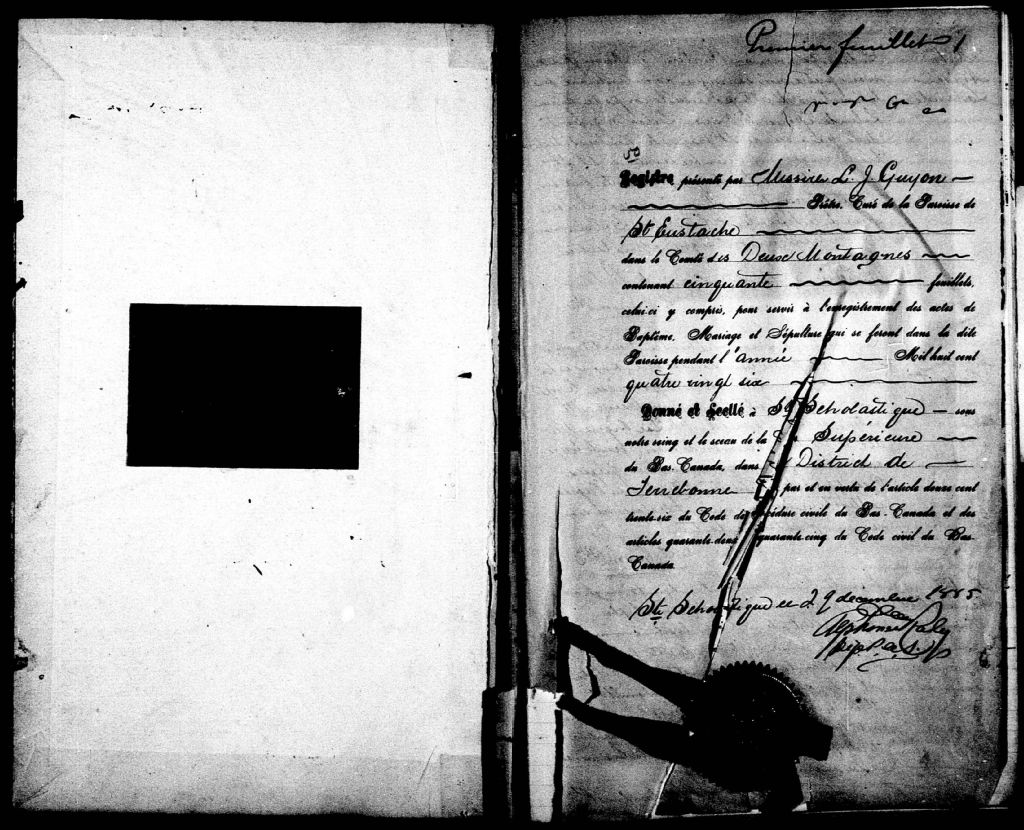 Premier feuillet 1
50
Registre présenté par Messire L. J. Guyon
Prêtre, Curé de la Paroisse de
St Eustache
dans le Comté des Deux Montagnes
contenant cinquante feuillets,
celui-ci y compris, pour servir à l'enregistrement des actes de
Baptême, Mariage et Sépulture qui se feront dans la dite
Paroisse pendant l'année Mil huit cent
quatre vingt six
Donné et Scellé à Ste Scholastique sous
notre seing et le sceau de la Supérieure
du Bas-Canada, dans District de
Terrebonne par et en vertu de l'article douze cent
trente-six du Code de civile du Bas-Canada et des
articles quarante-deux quarante-cinq du Code civil du Bas-
Canada.
Ste Scholastique 29 décembre 1885
Alphonse